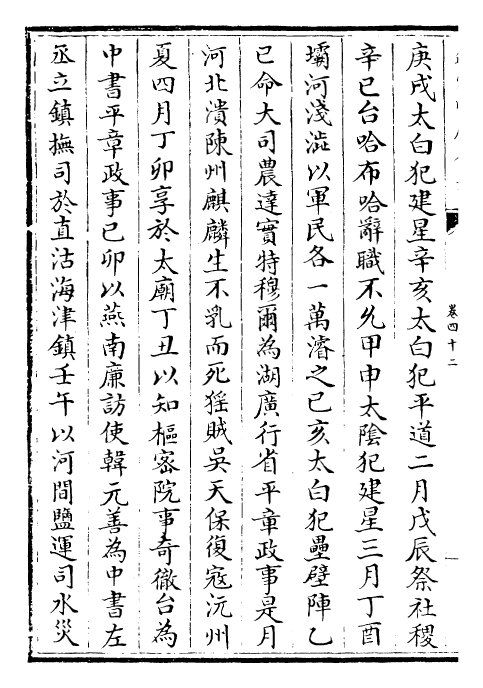 庚戌太白犯建星辛亥太白犯平道二月戊辰祭社稷
辛巳台哈布哈辭職不允甲申太陰犯建星三月丁酉
壩河淺澁以軍民各一萬濬之己亥太白犯壘壁陣乙
巳命大司農達實特穆爾為湖廣行省平章政事是月
河北潰陳州麒麟生不乳而死猺賊吳天保復寇沅州
夏四月丁卯享於太廟丁丑以知樞密院事奇徹台為
中書平章政事己卯以燕南廉訪使韓元善為中書左
丞立鎮撫司於直沽海津鎮壬午以河間鹽運司水災
卷四十二